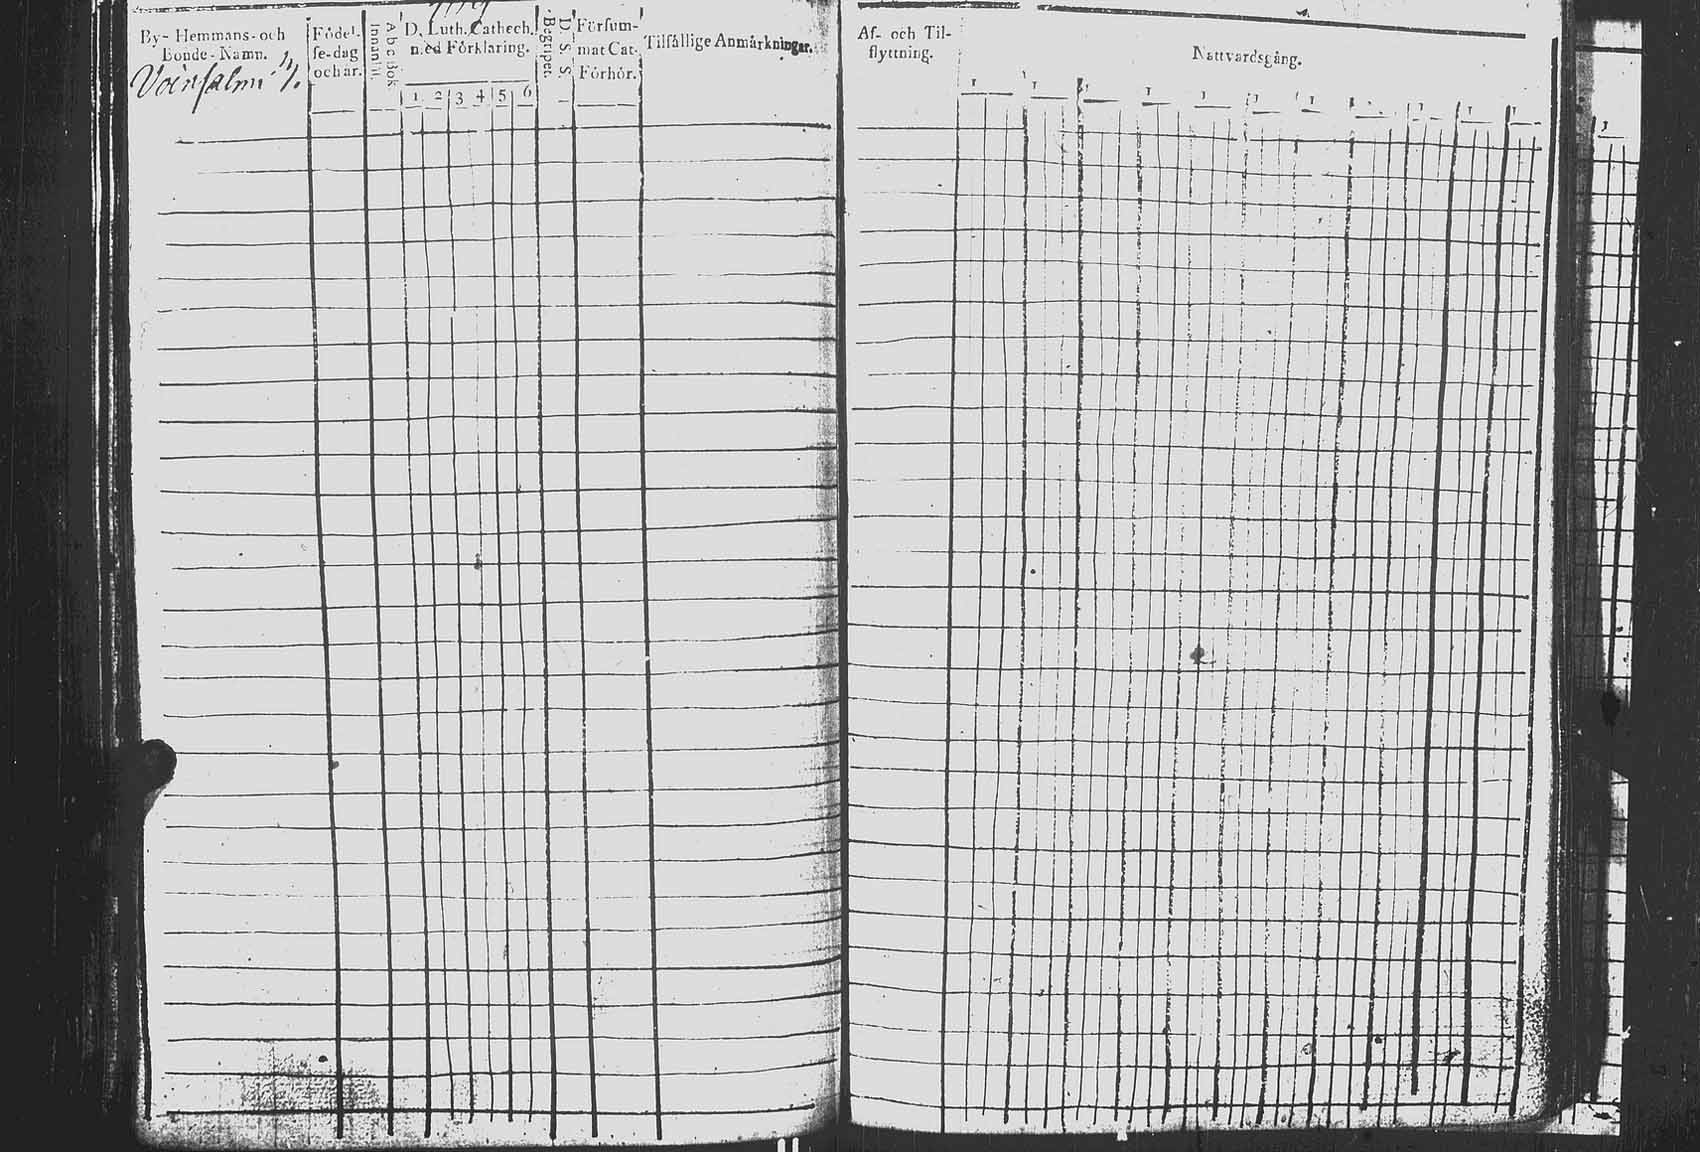 By- Hemmans- och
Bonde-Namn.
Födel-
se-dag
och år.
Abc Bok
Innantil
D. Luth. Cathech.
med Förklaring.
1 2 3 4 5 6
D. S. S.
Begrepet.
Försum-
mat Cat.
Förhör.
Tilfällige Anmärkningar.
Af- och Til-
flyttning.
Nattvardsgång.